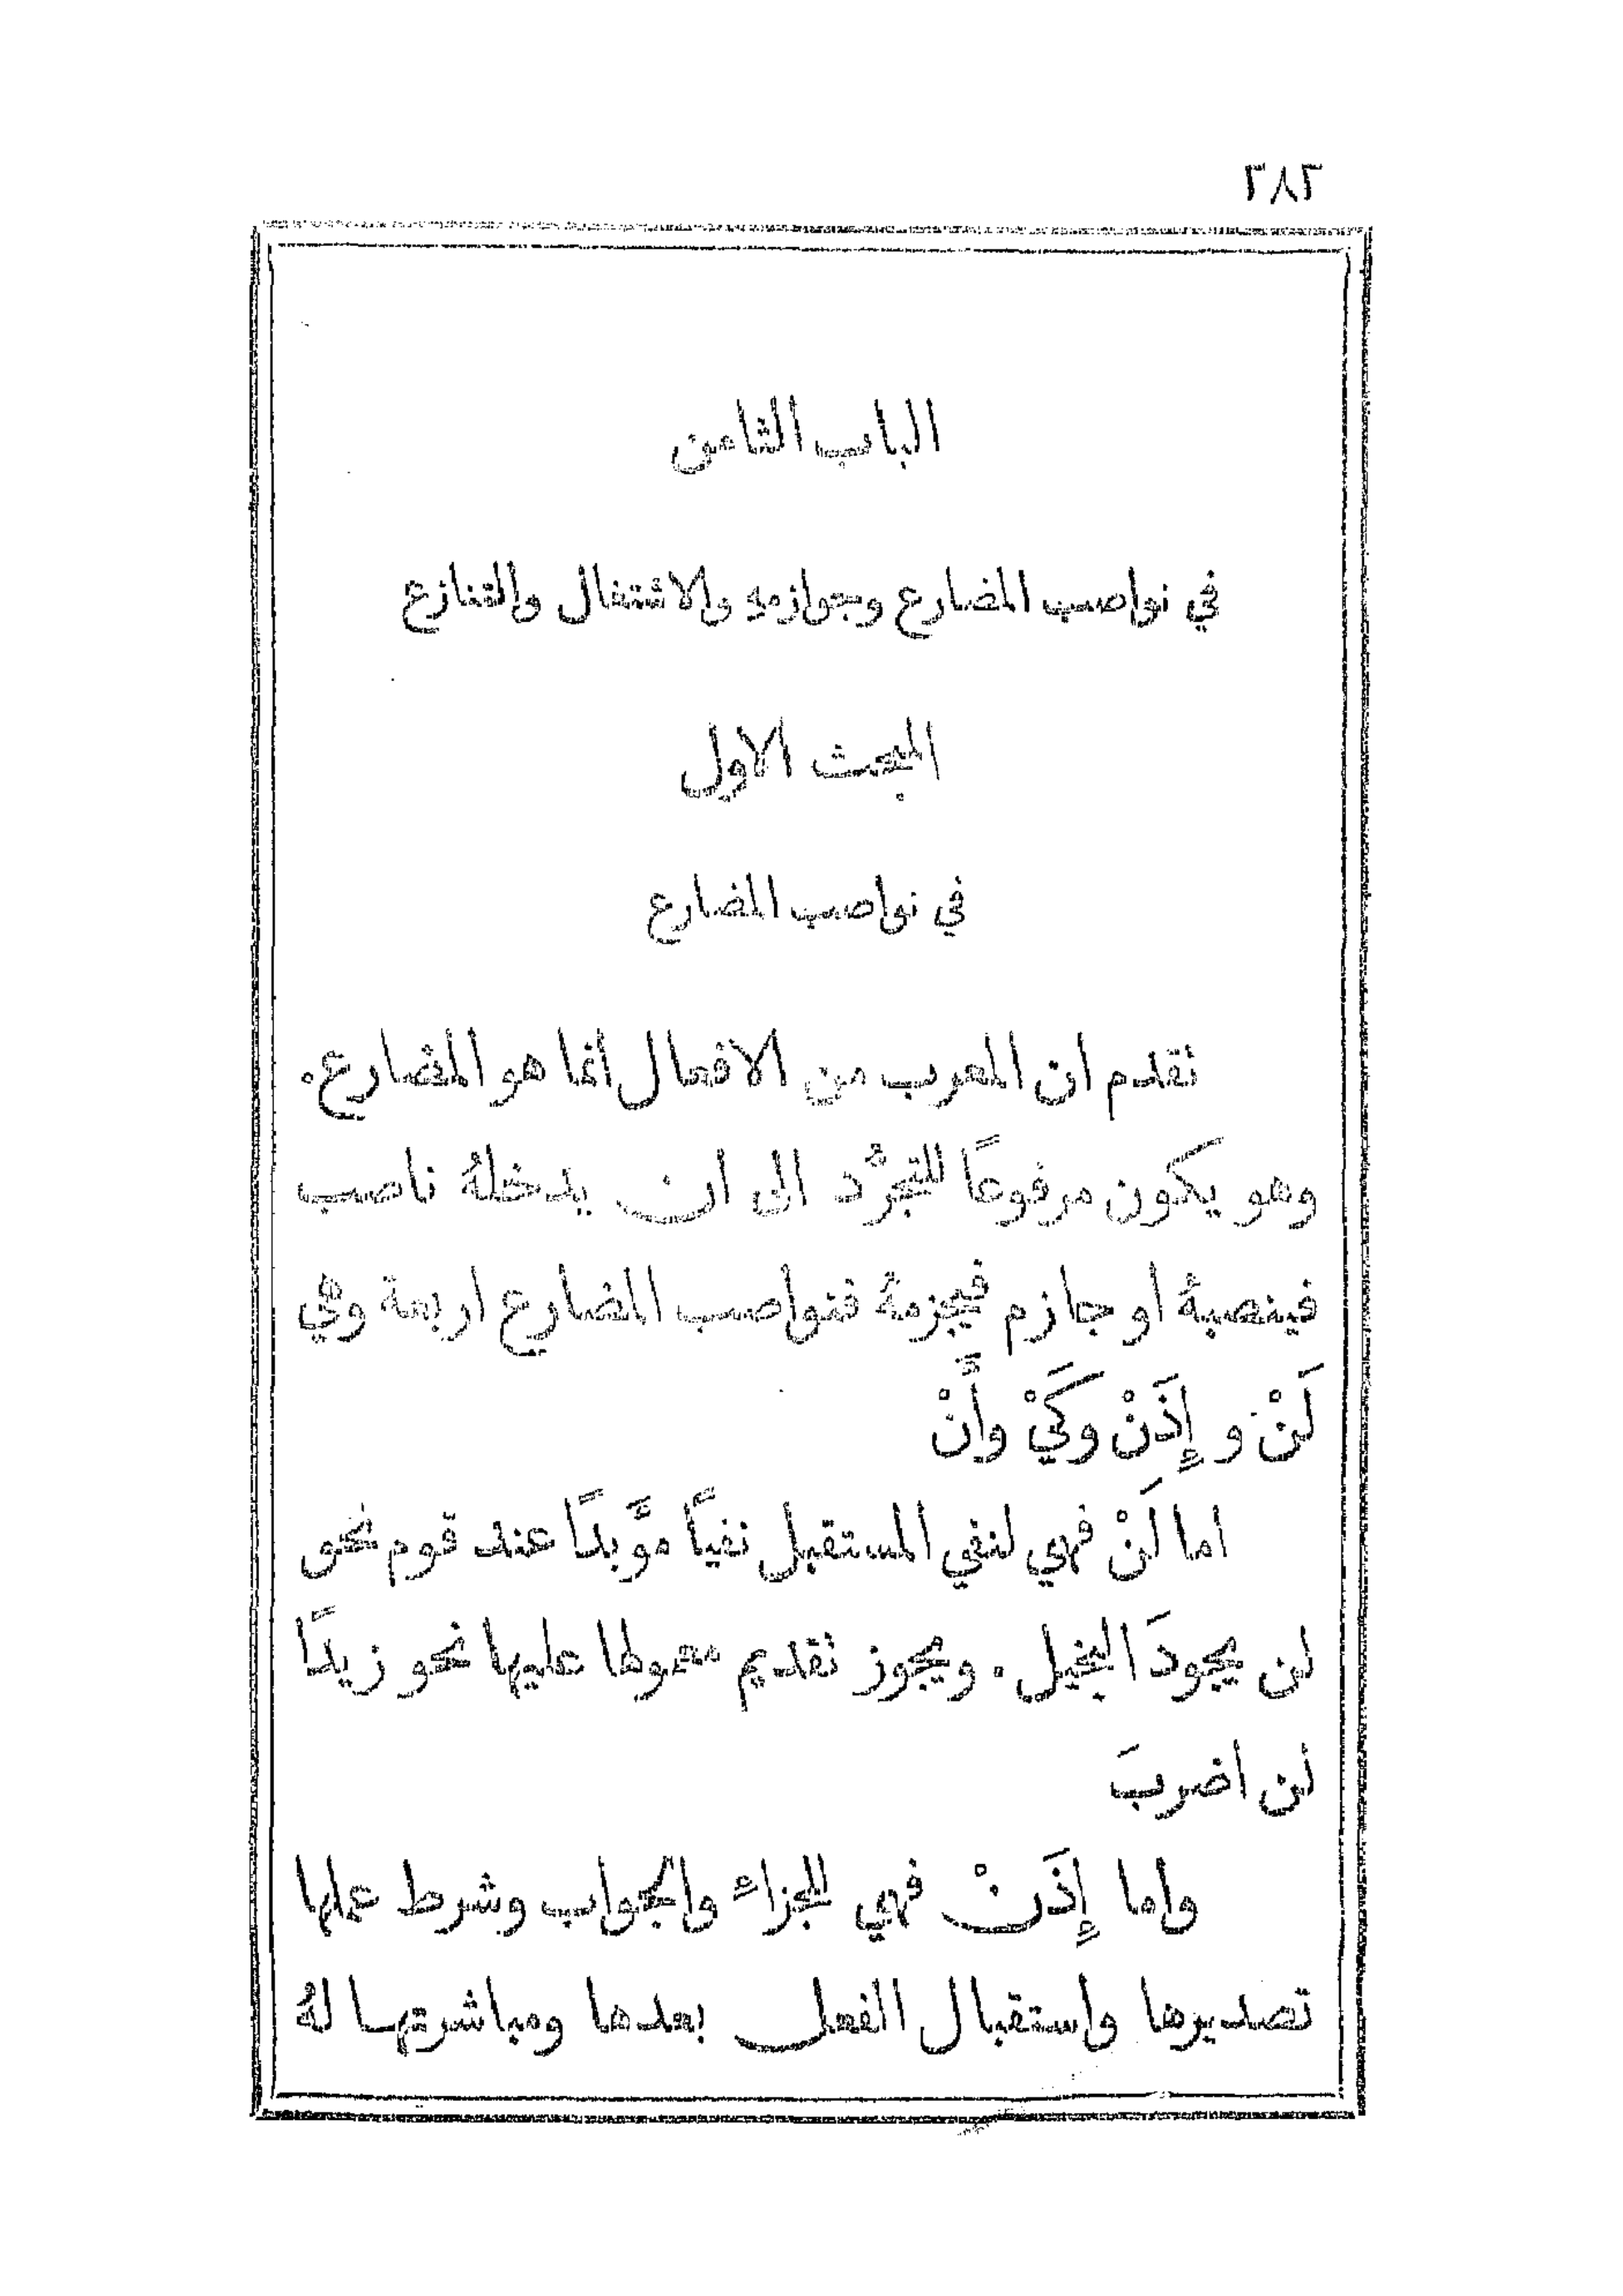 ٢٨٢
الباب الثامن
في نواصب المضارع وجوازمهِ والاشتغال والتنازع
المبحث الاول
في نواصب المضارع
تقدم ان المعرب من الافعال انما هو المضارع.
وهو يكون مرفوعًا للتجرُّد الى ان يدخلهُ ناصب
فينصبهُ او جازم فيجزمهُ فنواصب المضارع اربعة وهي
لَنْ و إِذَنْ وكَيْ وأَنْ
اما لَنْ فهي لنفي المستقبل نفيًا مؤَّبدًا عند قوم نحو
لن يجودَ البخيل. ويجوز تقديم معمولها عليها نحو زيدًا
لن اضربَ
واما إِذَنْ فهي للجزاء والجواب وشرط عملها
تصديرها واستقبال الفعل بعدها ومباشرتها لهُ